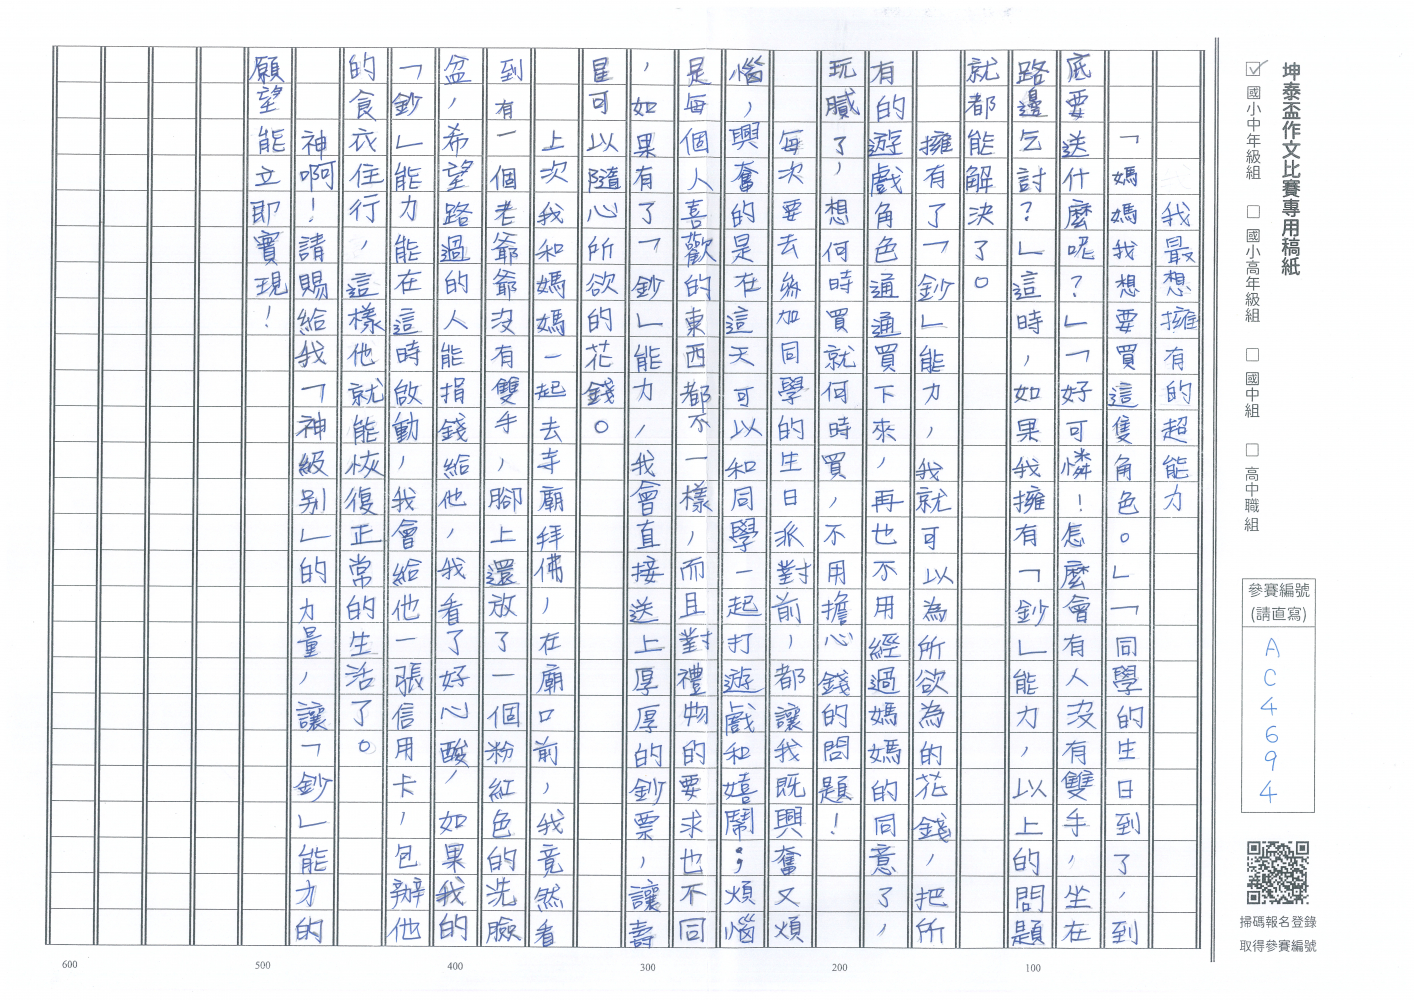 坤泰盃作文比賽專用稿紙
☑ 國小中年級組 □ 國小高年級組 □ 國中組 □ 高中職組
參賽編號
(請直寫)
AC4694
掃碼報名登錄
取得參賽編號
我最想擁有的超能力
「媽媽我想要買這隻角色。」「同學的生日到了,到
底要送什麼呢?」「好可憐!怎麼會有人沒有雙手,坐在
路邊乞討?」這時,如果我擁有「鈔」能力,以上的問題
就都能解決了。
擁有了「鈔」能力,我就可以為所欲為的花錢,把所
有的遊戲角色通通買下來,再也不用經過媽媽的同意了,
玩膩了,想何時買就何時買,不用擔心錢的問題!
每次要去參加同學的生日派對前,都讓我既興奮又煩
惱,興奮的是在這天可以和同學一起打遊戲和嬉鬧;煩惱
是每個人喜歡的東西都不一樣,而且對禮物的要求也不同
,如果有了「鈔」能力,我會直接送上厚厚的鈔票,讓壽
星可以隨心所欲的花錢。
上次我和媽媽一起去寺廟拜佛,在廟口前,我竟然看
到有一個老爺爺沒有雙手,腳上還放了一個粉紅色的洗臉
盆,希望路過的人能捐錢給他,我看了好心酸,如果我的
「鈔」能力能在這時啟動,我會給他一張信用卡,包辦他
的食衣住行,這樣他就能恢復正常的生活了。
神啊!請賜給我「神級別」的力量,讓「鈔」能力的
願望能立即實現!
600
500
400
300
200
100